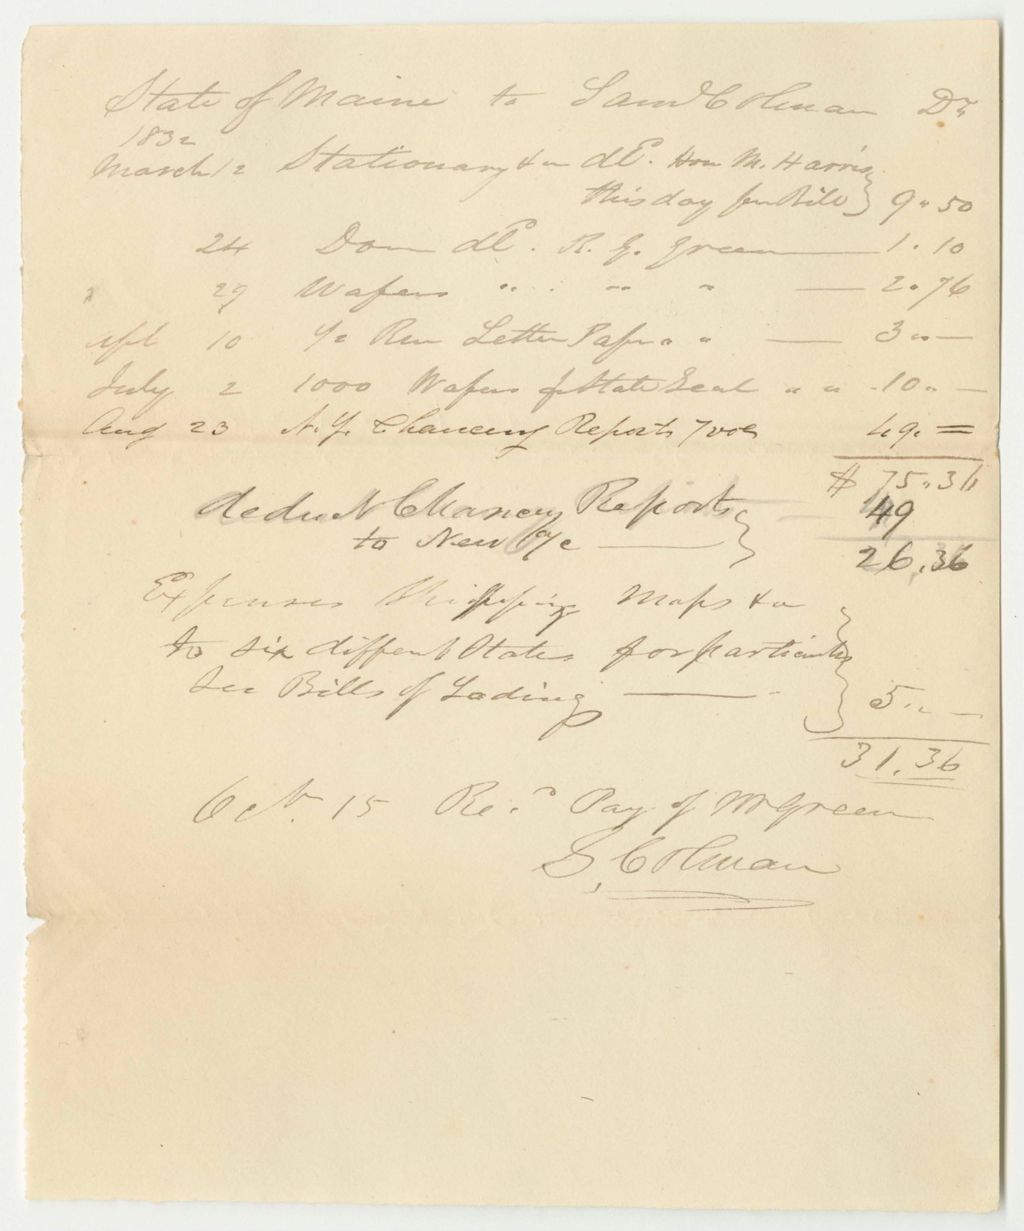 State of Maine to Saml Colman Dr
1832
March 12 Stationary &c dd. Hon M. Harris
this day per Bill } 9.50
24 Do dd. R. G. Green 1.10
" 29 Wafers " " " 2.76
Apl 10 1/2 Rm Letter Paper " " 3 " —
July 2 1000 Wafers for State Seal " " 10 " —
Aug 23 N.Y. Chancery Reports 7 vols 49. =
$ 75.36
deduct Chancery Reports 49
to New a/c }
26.36
Expenses Shipping Maps &c
to six different States for particulars
See Bills of Lading } 5 " —
31.36
Oct. 15 Recd Pay of Mr Green
S. Colman